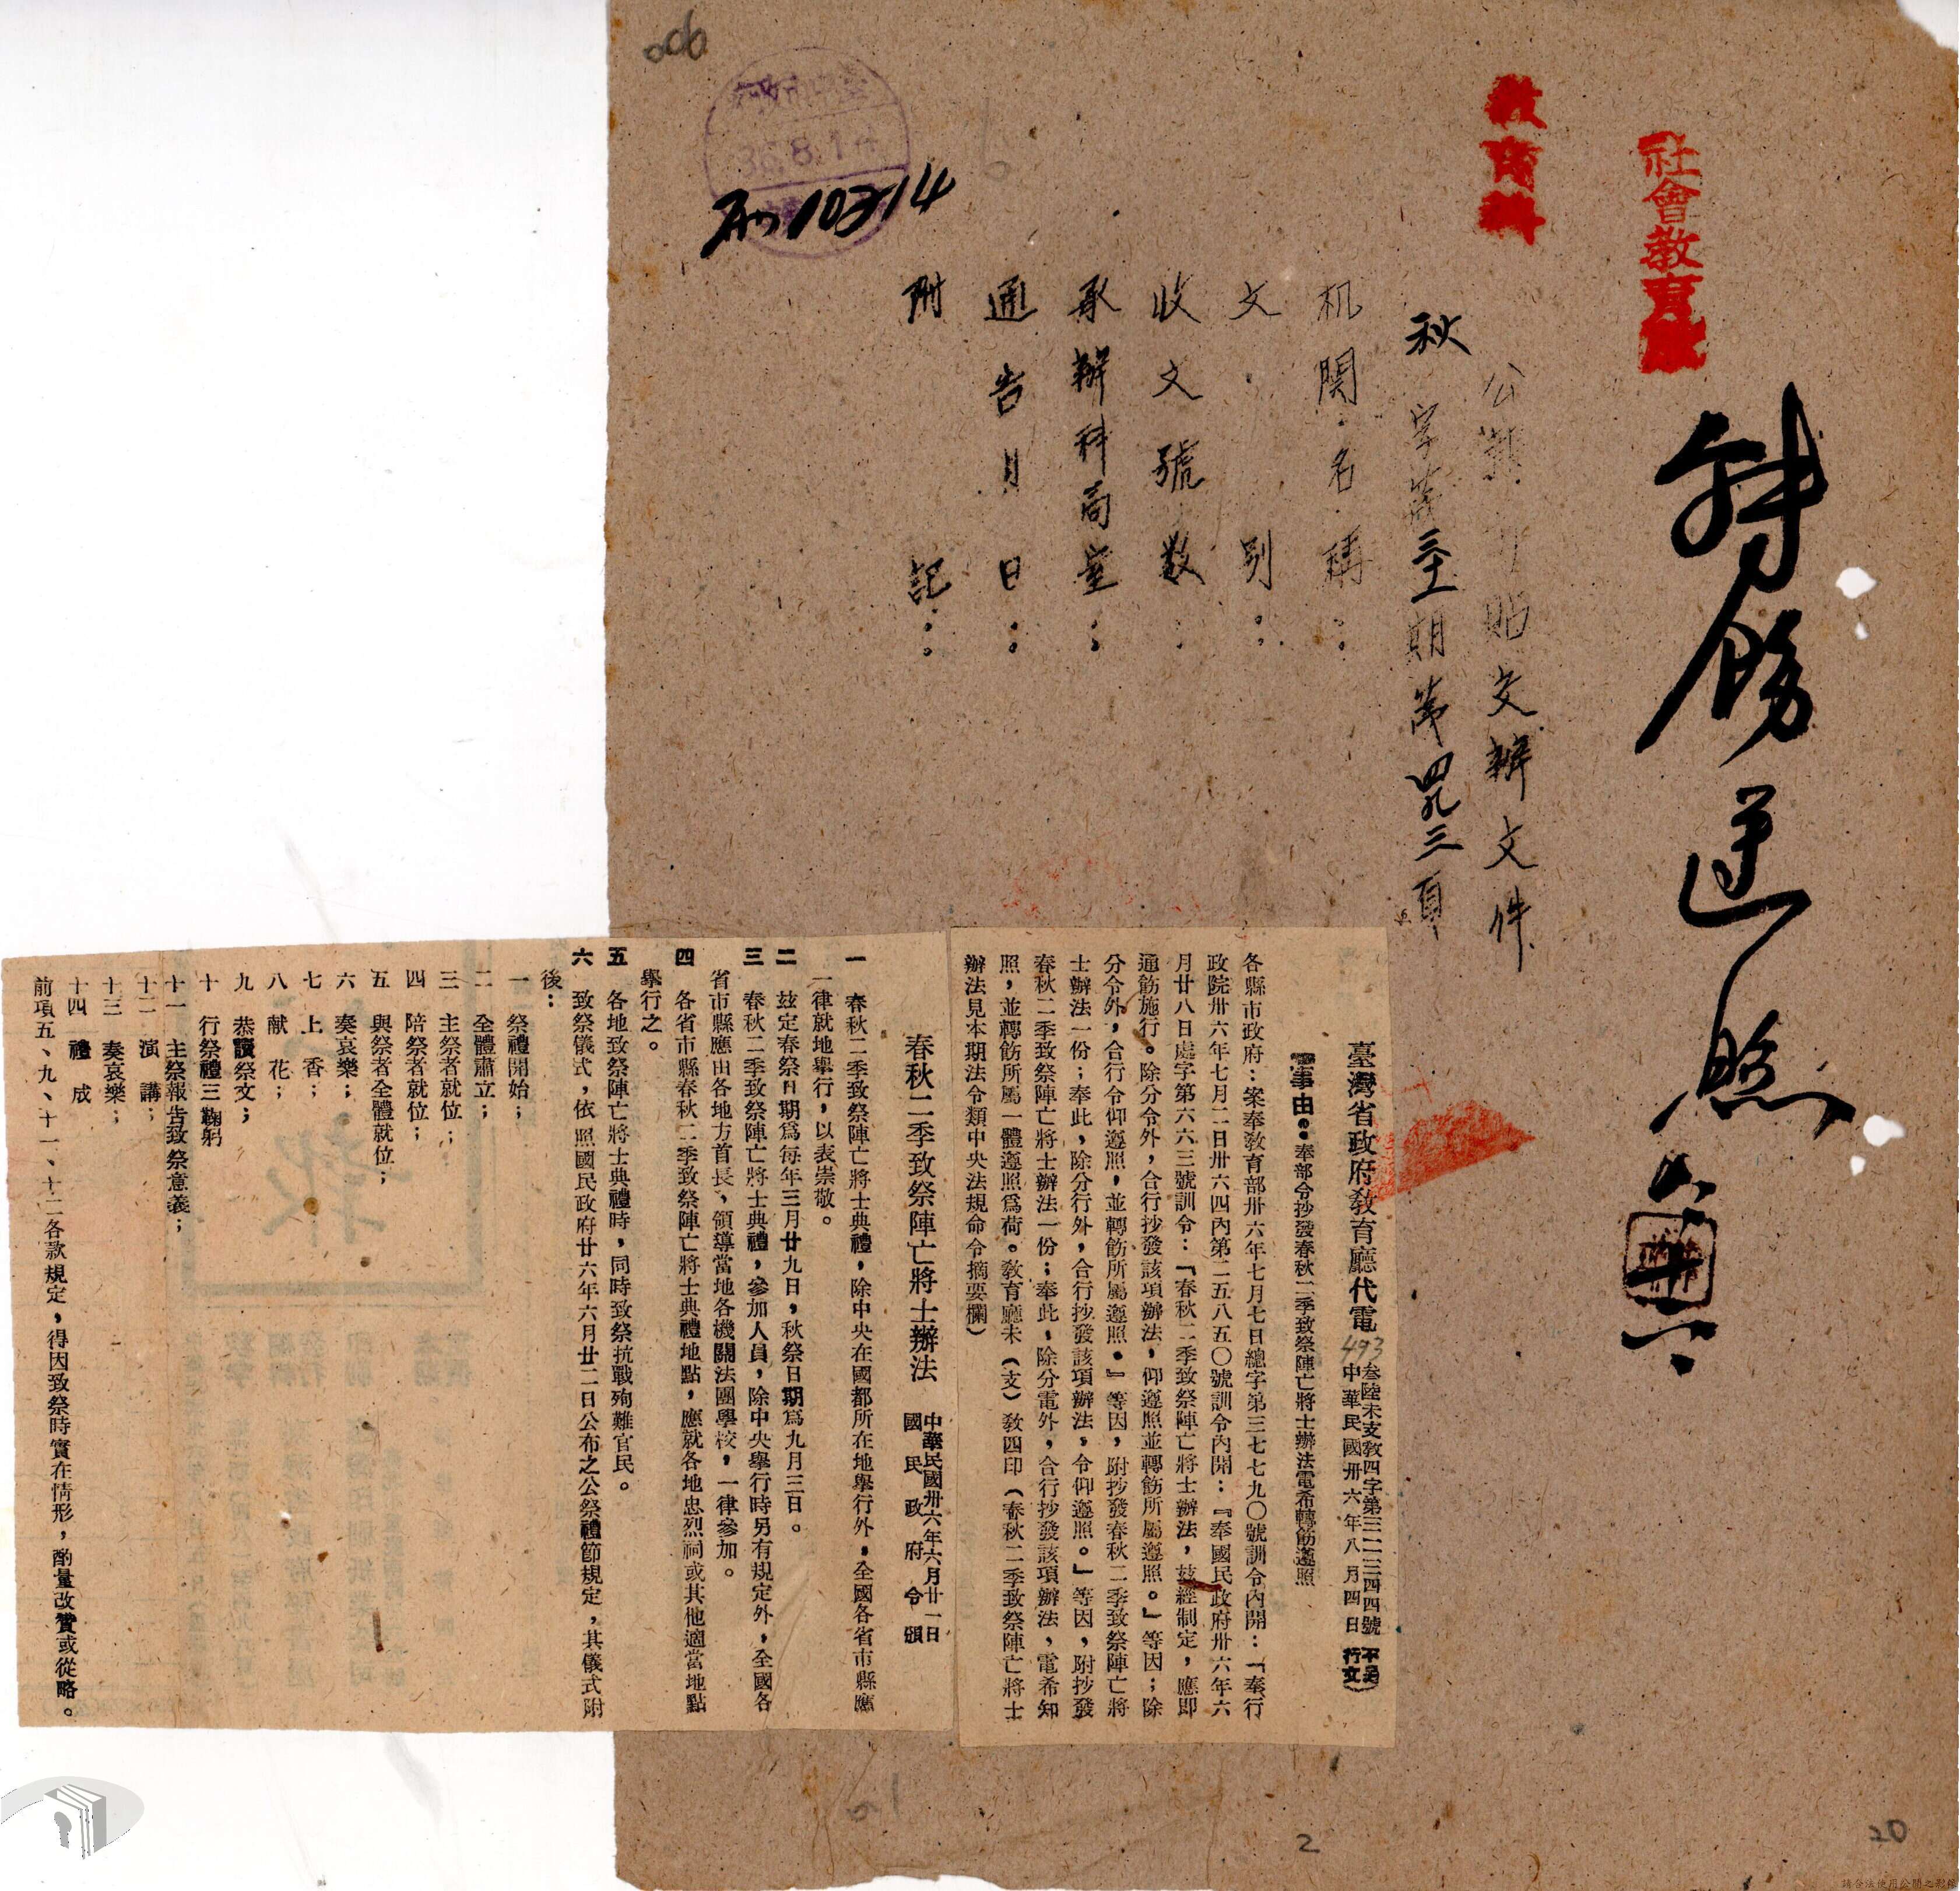 社會教育股
教育科
轉飭遵照
公報剪貼交辦文件
秋字第三十一期第四九三頁
机關名稱：
文別：
收文號數：
承辦科局室：
通告月日：
附記：
006
36.8.14
10214
臺灣省政府教育廳代電
493
叁陸未支教四字第三二三四四號
中華民國卅六年八月四日
（不另行文）
事由：奉部令抄發春秋二季致祭陣亡將士辦法電希轉飭遵照
各縣市政府：案奉教育部卅六年七月七日總字第三七七九〇號訓令內開：「奉行
政院卅六年七月二日卅六四內第二五八五〇號訓令內開：『奉國民政府卅六年六
月廿八日處字第六六三號訓令：「春秋二季致祭陣亡將士辦法，茲經制定，應即
通飭施行。除分令外，合行抄發該項辦法，仰遵照並轉飭所屬遵照。」等因；除
分令外，合行令仰遵照，並轉飭所屬遵照。』等因，附抄發春秋二季致祭陣亡將
士辦法一份；奉此，除分行外，合行抄發該項辦法，令仰遵照。」等因，附抄發
春秋二季致祭陣亡將士辦法一份；奉此，除分電外，合行抄發該項辦法，電希知
照，並轉飭所屬一體遵照爲荷。教育廳未（支）教四印（春秋二季致祭陣亡將士
辦法見本期法令類中央法規命令摘要欄）
春秋二季致祭陣亡將士辦法
中華民國卅六年六月廿一日
國民政府令頒
一　春秋二季致祭陣亡將士典禮，除中央在國都所在地舉行外，全國各省市縣應
一律就地舉行，以表崇敬。
二　茲定春祭日期爲每年三月廿九日，秋祭日期爲九月三日。
三　春秋二季致祭陣亡將士典禮，參加人員，除中央舉行時另有規定外，全國各
省市縣應由各地方首長、領導當地各機關法團學校，一律參加。
四　各省市縣春秋二季致祭陣亡將士典禮地點，應就各地忠烈祠或其他適當地點
舉行之。
五　各地致祭陣亡將士典禮時，同時致祭抗戰殉難官民。
六　致祭儀式，依照國民政府廿六年六月廿二日公布之公祭禮節規定，其儀式附
後：
一　祭禮開始；
二　全體肅立；
三　主祭者就位；
四　陪祭者就位；
五　與祭者全體就位；
六　奏哀樂；
七　上　香；
八　献　花；
九　恭讀祭文；
十　行祭禮三鞠躬
十一　主祭報告致祭意義；
十二　演　講；
十三　奏哀樂；
十四　禮　成
前項五、九、十一、十二各款規定，得因致祭時實在情形，酌量改變或從略。
2
20
請合法使用公開之影像